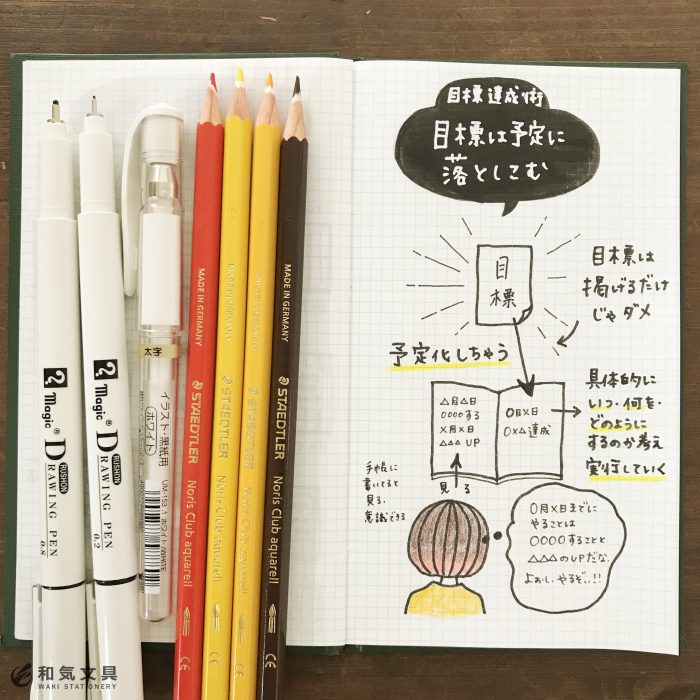 目標達成術
目標は予定に
落としこむ
目
標
目標は
掲げるだけ
じゃダメ
予定化しちゃう
△月△日
○○○○する
×月×日
△△△ UP
○月×日
○×△達成
具体的に
いつ・何を・
どのように
するのか考え
実行していく
手帳に
書いてると
見る、
意識できる
見る
○月×日までに
やることは
○○○○することと
△△△のUPだな.
よぉし、やるぞ..!!
Magic®
DRAWING PEN
RUSHON
0.8
Magic®
DRAWING PEN
RUSHON
0.2
太字
イラスト・黒紙用
(ホワイト)
UM-153 1 ホワイト/WHITE
MADE IN GERMANY
STAEDTLER
Noris Club aquarell
CE
MADE IN GERMANY
STAEDTLER
Noris Club aquarell
CE
MADE IN GERMANY
STAEDTLER
Noris Club aquarell
CE
MADE IN GERMANY
STAEDTLER
Noris Club aquarell
CE
和気文具
WAKI STATIONERY